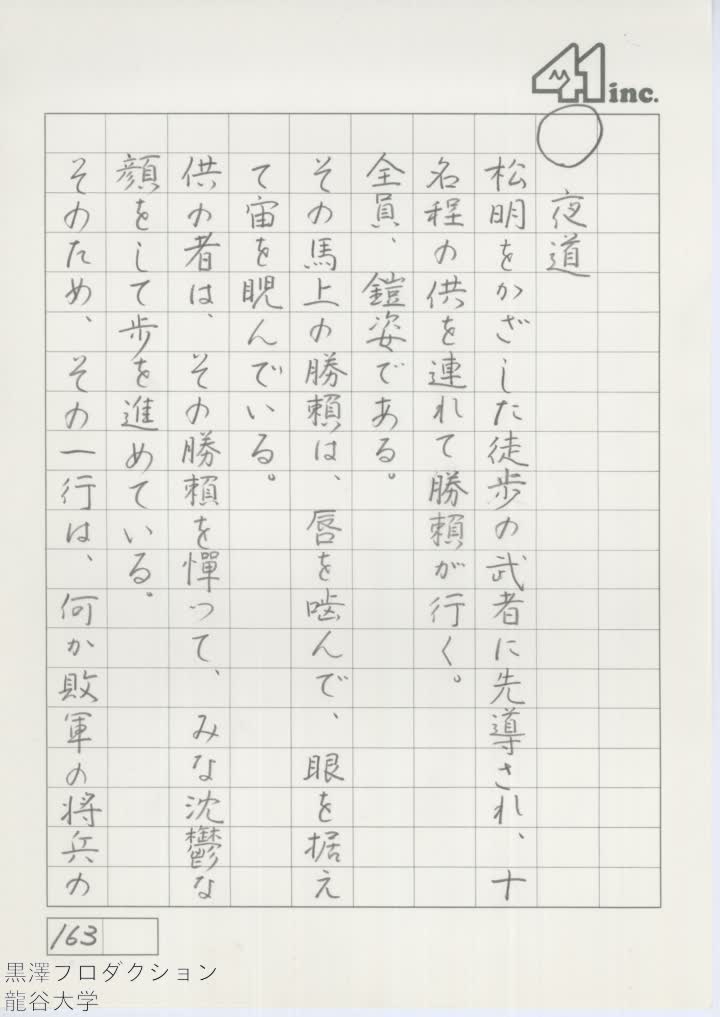 41 inc.
○ 夜道
松明をかざした徒歩の武者に先導され、十
名程の供を連れて勝頼が行く。
全員、鎧姿である。
その馬上の勝頼は、唇を噛んで、眼を据え
て宙を睨んでいる。
供の者は、その勝頼を憚って、みな沈鬱な
顔をして歩を進めている。
そのため、その一行は、何か敗軍の将兵の
163
黒澤プロダクション
龍谷大学